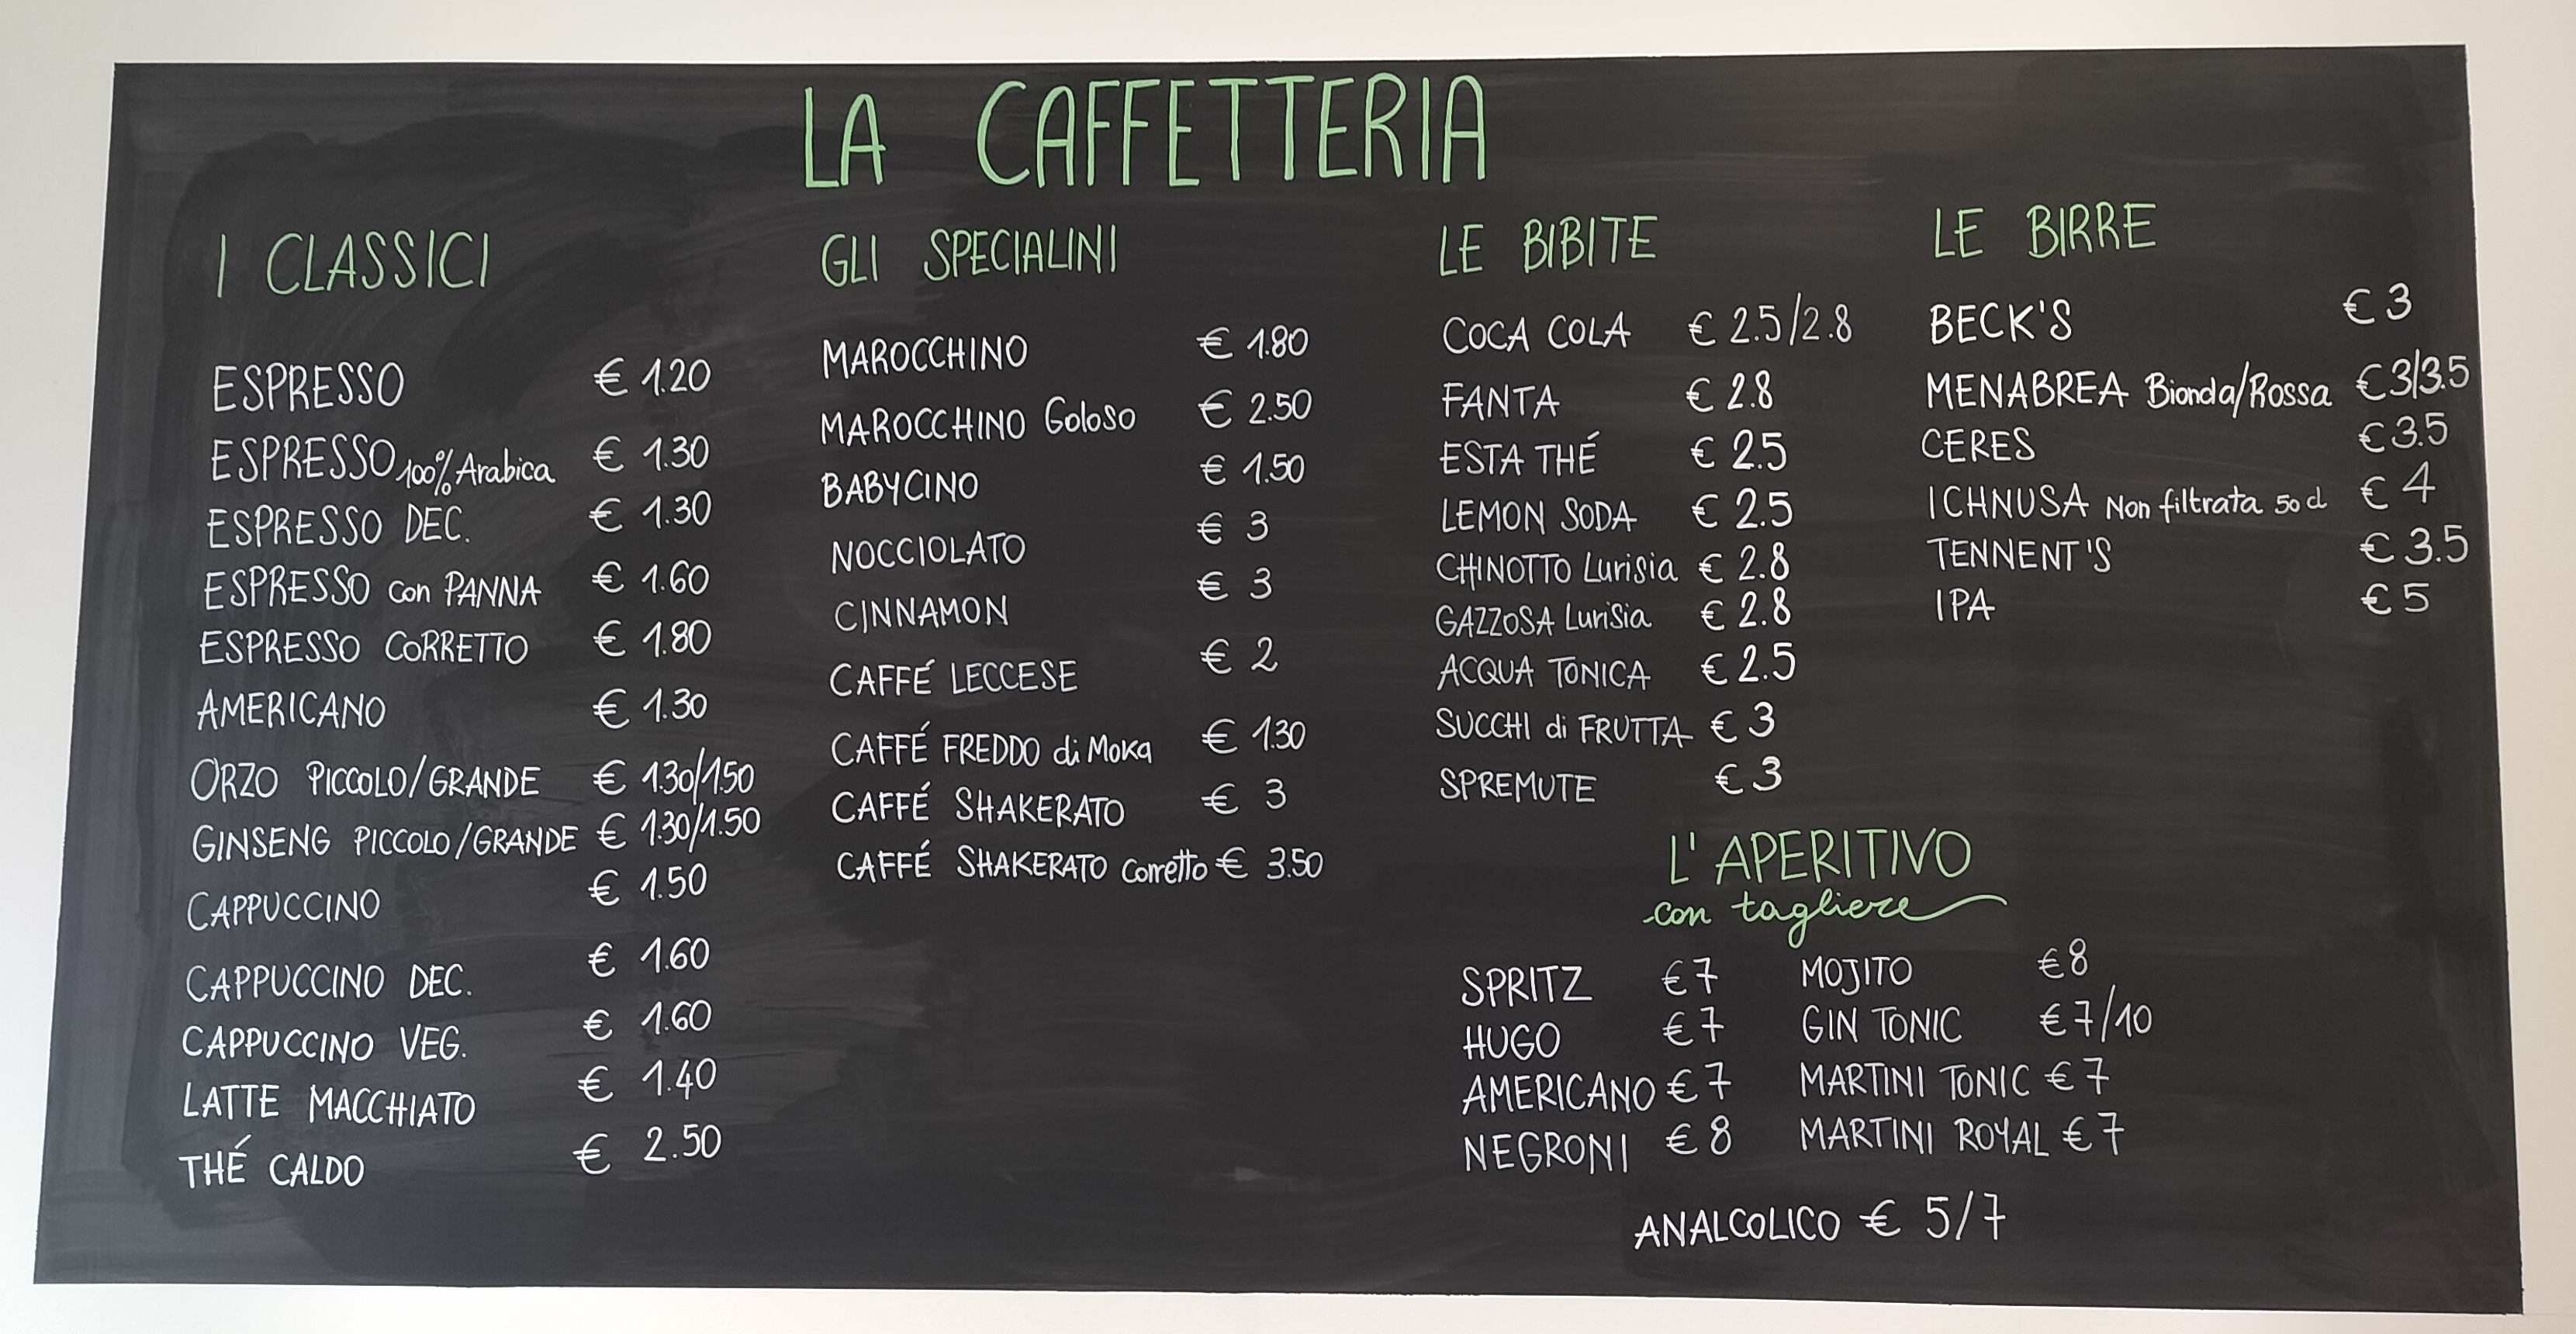 LA CAFFETTERIA
I CLASSICI
ESPRESSO € 1.20
ESPRESSO 100% Arabica € 1.30
ESPRESSO DEC. € 1.30
ESPRESSO con PANNA € 1.60
ESPRESSO CORRETTO € 1.80
AMERICANO € 1.30
ORZO PICCOLO/GRANDE € 1.30/1.50
GINSENG PICCOLO/GRANDE € 1.30/1.50
CAPPUCCINO € 1.50
CAPPUCCINO DEC. € 1.60
CAPPUCCINO VEG. € 1.60
LATTE MACCHIATO € 1.40
THÉ CALDO € 2.50
GLI SPECIALINI
MAROCCHINO € 1.80
MAROCCHINO Goloso € 2.50
BABYCINO € 1.50
NOCCIOLATO € 3
CINNAMON € 3
CAFFÉ LECCESE € 2
CAFFÉ FREDDO di Moka € 1.30
CAFFÉ SHAKERATO € 3
CAFFÉ SHAKERATO corretto € 3.50
LE BIBITE
COCA COLA € 2.5/2.8
FANTA € 2.8
ESTA THÉ € 2.5
LEMON SODA € 2.5
CHINOTTO Lurisia € 2.8
GAZZOSA Lurisia € 2.8
ACQUA TONICA € 2.5
SUCCHI di FRUTTA € 3
SPREMUTE € 3
LE BIRRE
BECK'S € 3
MENABREA Bionda/Rossa € 3/3.5
CERES € 3.5
ICHNUSA Non filtrata 50 cl € 4
TENNENT'S € 3.5
IPA € 5
L'APERITIVO
con tagliere
SPRITZ € 7
HUGO € 7
AMERICANO € 7
NEGRONI € 8
MOJITO € 8
GIN TONIC € 7/10
MARTINI TONIC € 7
MARTINI ROYAL € 7
ANALCOLICO € 5/7